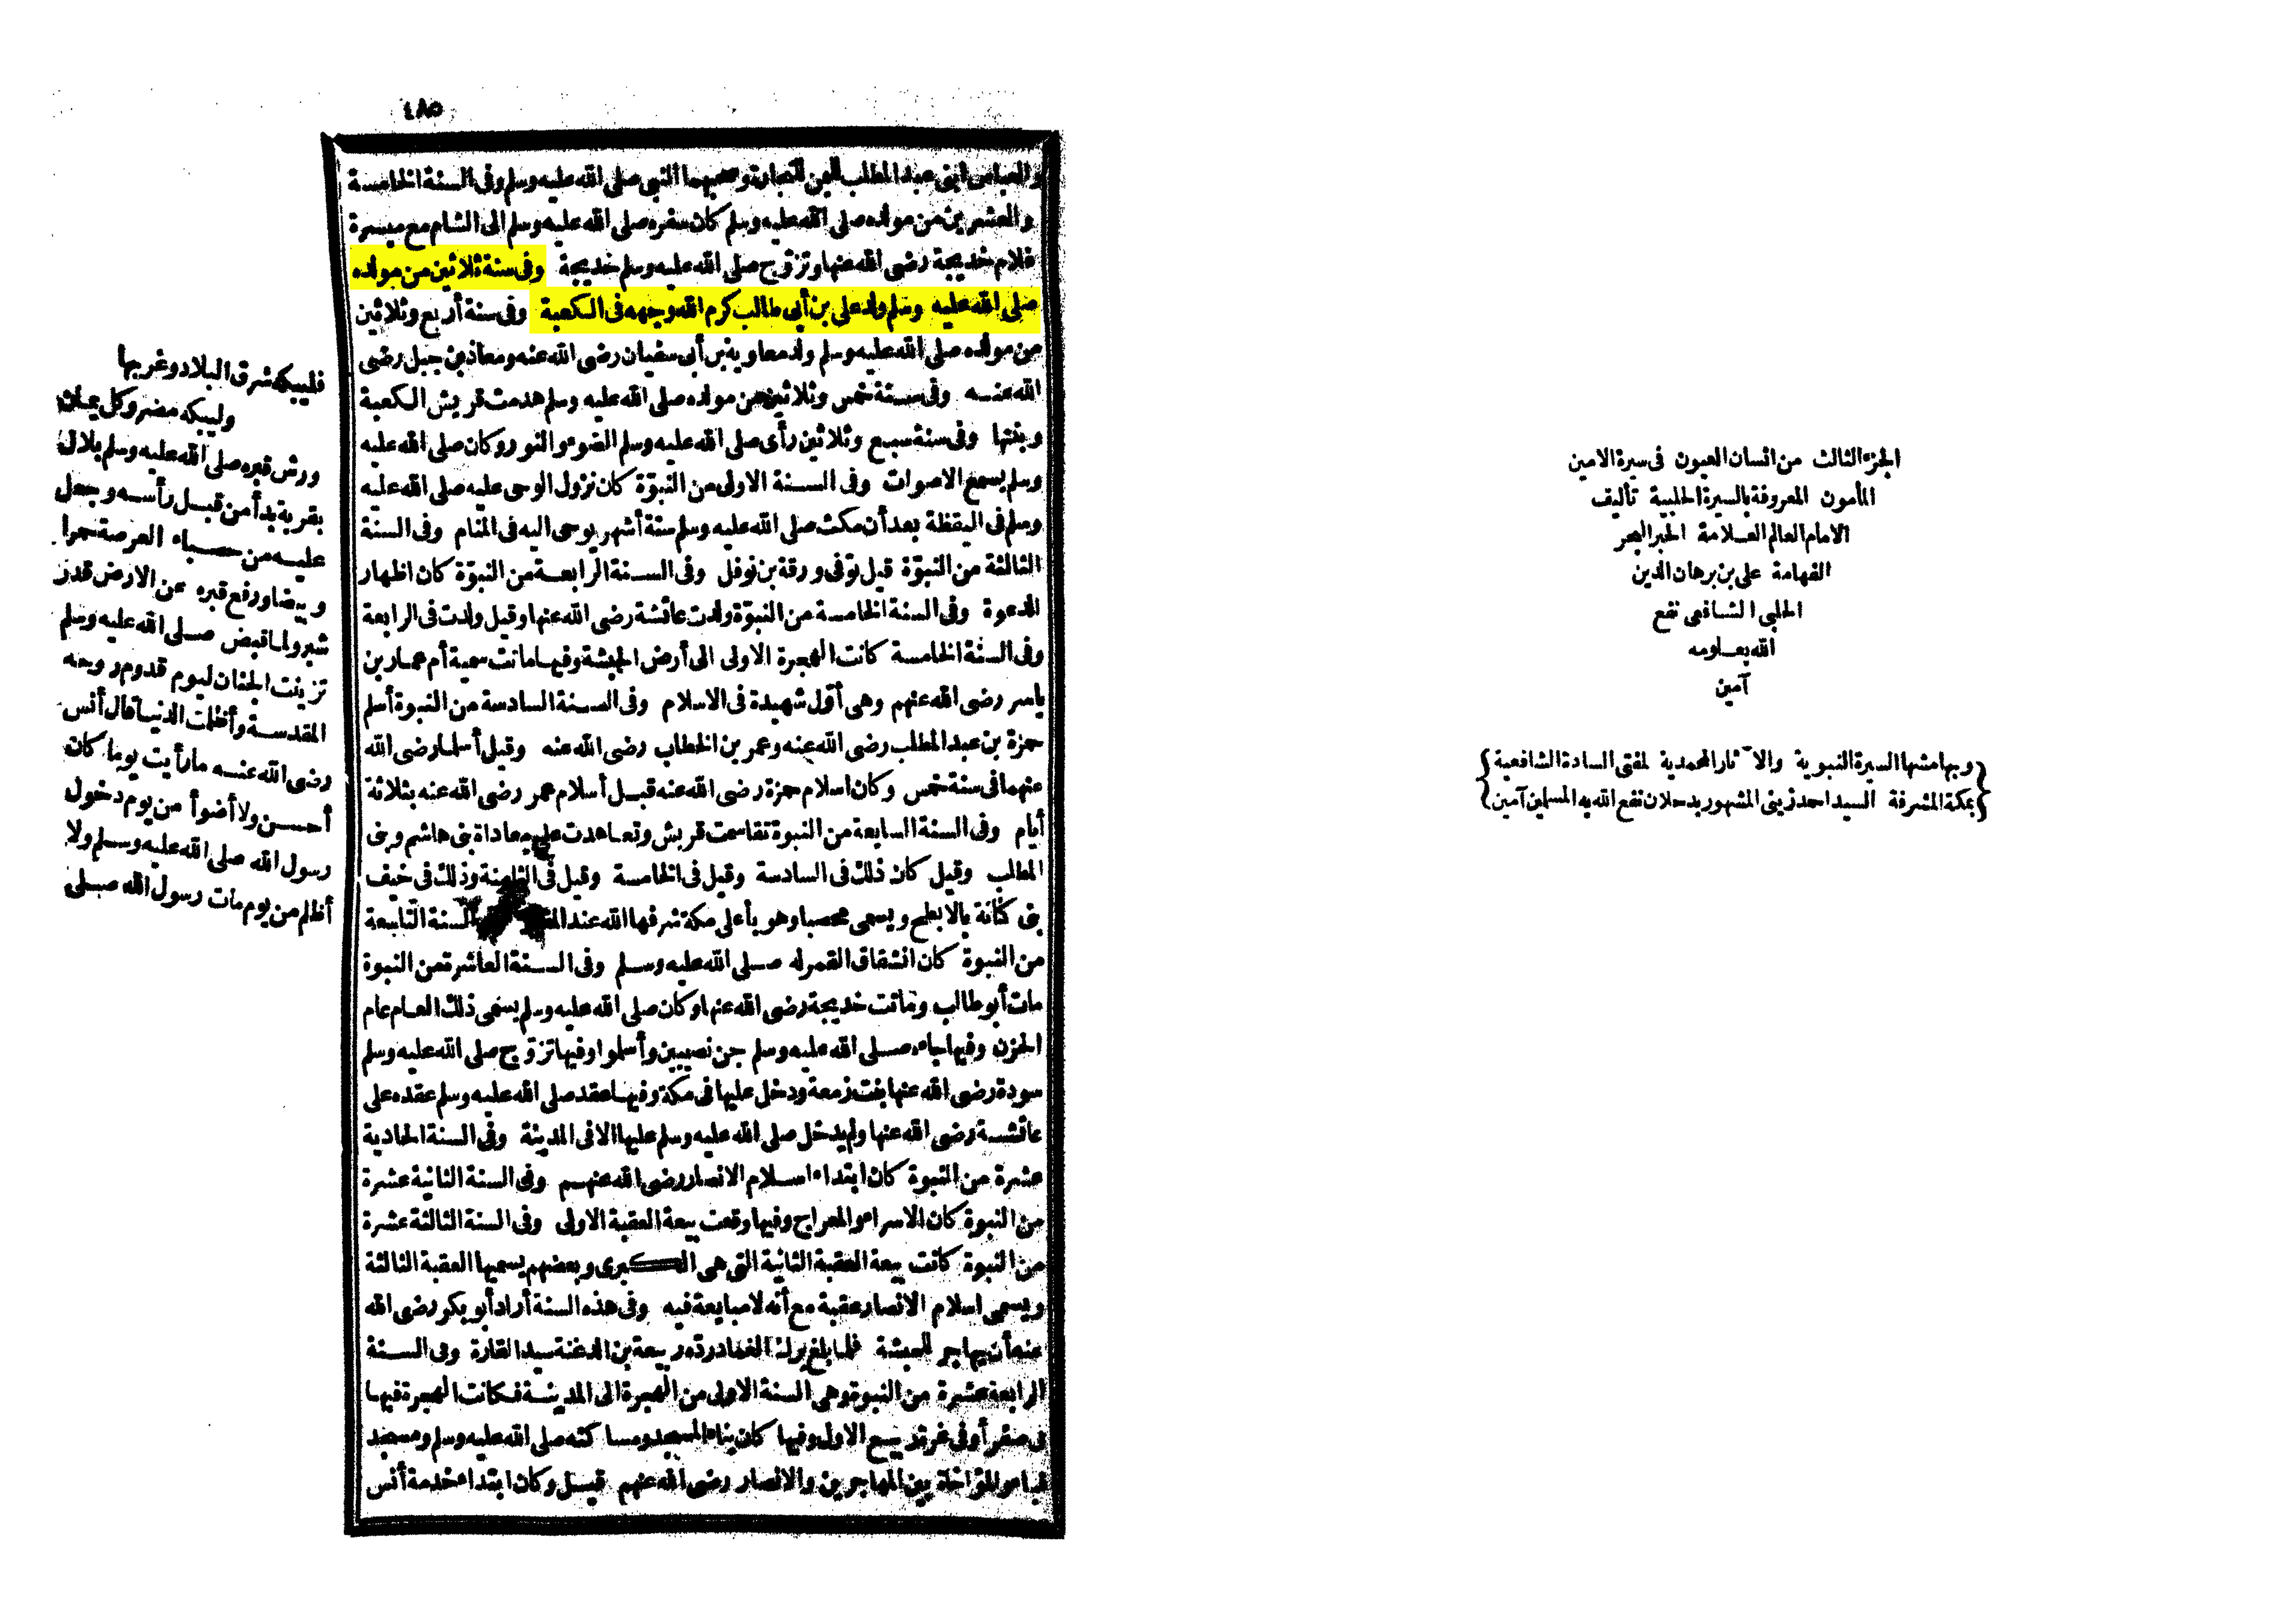 الجزء الثالث من انسان العيون فى سيرة الامين
المأمون المعروفة بالسيرة الحلبية تأليف
الامام العالم العلامة الحبر البحر
الفهامة على بن برهان الدين
الحلبى الشافعى نفع
الله بعلومه
آمين
{وبهامشها السيرة النبوية والآثار المحمدية لمفتى السادة الشافعية}
{بمكة المشرفة السيد احمد زينى المشهور بدحلان نفع الله به المسلمين آمين}
٤٨٥
والعباس ابنى عبد المطلب اليمن للتجارة وصحبهما النبى صلى الله عليه وسلم وفى السنة الخامسة
والعشرين من مولده صلى الله عليه وسلم كان سفره صلى الله عليه وسلم الى الشام مع ميسرة
غلام خديجة رضى الله عنها وتزوّج صلى الله عليه وسلم خديجة وفى سنة ثلاثين من مولده
صلى الله عليه وسلم ولد على بن أبى طالب كرم الله وجهه فى الكعبة وفى سنة أربع وثلاثين
من مولده صلى الله عليه وسلم ولد معاوية بن أبى سفيان رضى الله عنه ومعاذ بن جبل رضى
الله عنه وفى سنة خمس وثلاثين من مولده صلى الله عليه وسلم هدمت قريش الكعبة
وبنتها وفى سنة سبع وثلاثين رأى صلى الله عليه وسلم الضوء والنور وكان صلى الله عليه
وسلم يسمع الاصوات وفى السنة الاولى من النبوّة كان نزول الوحى عليه صلى الله عليه
وسلم فى اليقظة بعد أن مكث صلى الله عليه وسلم ستة أشهر يوحى اليه فى المنام وفى السنة
الثالثة من النبوّة قيل توّفى ورقة بن نوفل وفى السنة الرابعة من النبوّة كان اظهار
الدعوة وفى السنة الخامسة من النبوّة ولدت عائشة رضى الله عنها وقيل ولدت فى الرابعة
وفى السنة الخامسة كانت الهجرة الاولى الى أرض الحبشة وفيها ماتت سمية أم عمار بن
ياسر رضى الله عنهم وهى أوّل شهيدة فى الاسلام وفى السنة السادسة من النبوة أسلم
حمزة بن عبد المطلب رضى الله عنه وعمر بن الخطاب رضى الله عنه وقيل أسلما رضى الله
عنهما فى سنة خمس وكان اسلام حمزة رضى الله عنه قبل أسلام عمر رضى الله عنه بثلاثة
أيام وفى السنة السابعة من النبوة تقاسمت قريش وتعاهدت على معاداة بنى هاشم وبنى
المطلب وقيل كان ذلك فى السادسة وقيل فى الخامسة وقيل فى الثامنة وذلك فى خيف
بنى كنانة بالابطح ويسمى محصبا وهو بأعلى مكة شرفها الله عند السنة التاسعة
من النبوة كان انشقاق القمر له صلى الله عليه وسلم وفى السنة العاشرة من النبوة
مات أبو طالب وماتت خديجة رضى الله عنها وكان صلى الله عليه وسلم يسمى ذلك العام عام
الحزن وفيها جاءه صلى الله عليه وسلم جن نصيبين وأسلموا وفيها تزوّج صلى الله عليه وسلم
سودة رضى الله عنها بنت زمعة ودخل عليها فى مكة وفيها عقد صلى الله عليه وسلم عقده على
عائشة رضى الله عنها ولم يدخل صلى الله عليه وسلم عليها الا فى المدينة وفى السنة الحادية
عشرة من النبوة كان ابتداء اسلام الانصار رضى الله عنهم وفى السنة الثانية عشرة
من النبوة كان الاسراء والمعراج وفيها وقعت بيعة العقبة الاولى وفى السنة الثالثة عشرة
من النبوة كانت بيعة العقبة الثانية التى هى الكبرى وبعضهم يسميها العقبة الثالثة
ويسمى اسلام الانصار عقبة مع أنه لا مبايعة فيه وفى هذه السنة أراد أبو بكر رضى الله
عنه أن يهاجر للحبشة فلما بلغ برك الغماد رده ربيعة بن الدغنة سيد القارة وفى السنة
الرابعة عشرة من النبوة وهى السنة الاولى من الهجرة الى المدينة فكانت الهجرة فيها
فى صفر أو فى غرة ربيع الاول وفيها كان بناء المسجد ومساكنه صلى الله عليه وسلم ومسجد
قباء والمؤاخاة بين المهاجرين والانصار رضى الله عنهم قيل وكان ابتداء خدمة أنس
فليبكه شرق البلاد وغربها
وليبكه مضر وكل يمان
ورش قبره صلى الله عليه وسلم بلال
بقربة بدأ من قبل رأسه وجعل
عليه من حصباء العرصة حمرا
وبيضا ورفع قبره عن الارض قدر
شبر ولما قبض صلى الله عليه وسلم
تزينت الجنان ليوم قدوم روحه
المقدسة وأظلمت الدنيا قال أنس
رضى الله عنه ما رأيت يوما كان
أحسن ولا أضوأ من يوم دخول
رسول الله صلى الله عليه وسلم ولا
أظلم من يوم مات رسول الله صلى